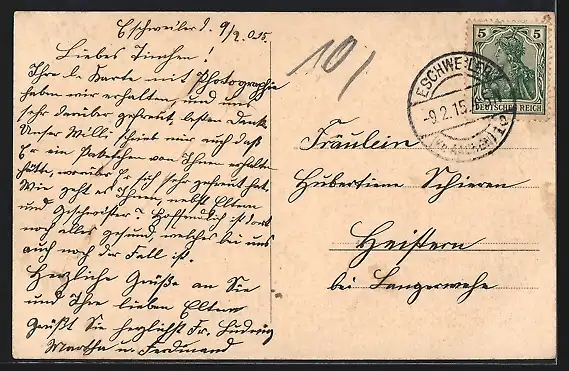 Eschweiler 2. 9/2.015.
Liebes Tinchen!
Ihre l. Karte mit Photographie
haben wir erhalten, und uns
sehr darüber gefreut, besten Dank.
Unser Willi schrieb mir auch daß
Er ein Paketchen von Ihnen erhalten
hätte, worüber Er sich sehr gefreut hat.
Wie geht es Ihnen, nebst Eltern
und Geschwister? Hoffentlich ist dort
noch alles gesund, welches bei uns
auch noch der Fall ist.
Herzliche Grüße an Sie
und Ihre lieben Eltern
Grüßt Sie herzlichst Fr. Ludwig
Martha u. Ferdinand
10/
5 5
DEUTSCHES REICH
ESCHWEILER
-9.2.15.
Fräulein
Hubertine Schieren
Heistern
bei Langerwehe